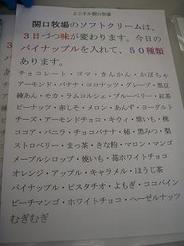 関口牧場のソフトクリームは、
3日づつ味が変わります。今日の
パイナップルを入れて、50種類
あります。
チョコレート・ゴマ・きんかん・かぼちゃ
アーモンド・バナナ・ココナッツ・グレープ・黒豆
練あん・セロリ・ラムコルシェ・ブルーベリー・紅茶
ピーナッツ・赤しそ・メロン・あんず・ヨーグルト
チーズ・アーモンドチョコ・キウイ・黒いも・桃
ココア・バニラ・チョコバナナ・柿・黒みつ・梨
ストロベリー・まっ茶・きな粉・マロン・マンゴ
メープルシロップ・焼いも・苺ホワイトチョコ
オレンジ・アップル・キャラメル・ほうじ茶
パイナップル・ピスタチオ・よもぎ・ココパイン
ピーチマンゴ・ホワイトチョコ・ヘーゼルナッツ
むぎむぎ